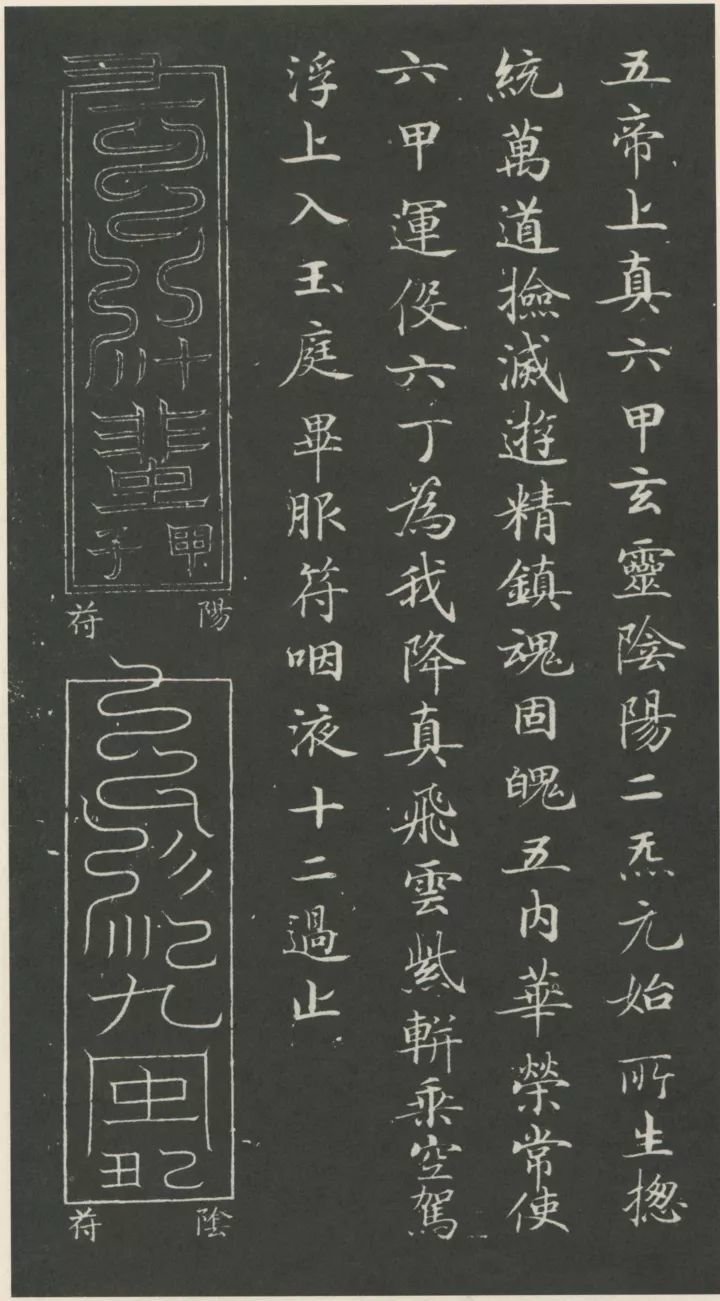 五帝上真六甲玄靈陰陽二炁元始所生揔
統萬道撿滅遊精鎮魂固魄五内華榮常使
六甲運役六丁為我降真飛雲紫軿乘空駕
浮上入玉庭畢服符咽液十二過止
甲子
陽符
九
己丑
陰符